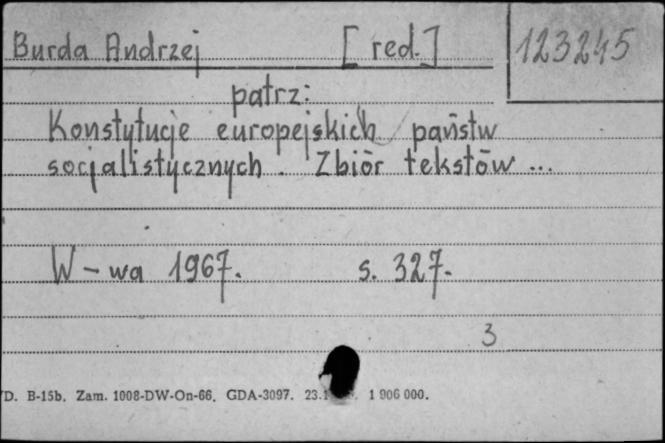 Burda Andrzej [red.] 123245
patrz:
Konstytucje europejskich państw
socjalistycznych. Zbiór tekstów ...
W-wa 1967. s. 327.
3
D. B-15b. Zam. 1008-DW-On-66. GDA-3097. 1 906 000.